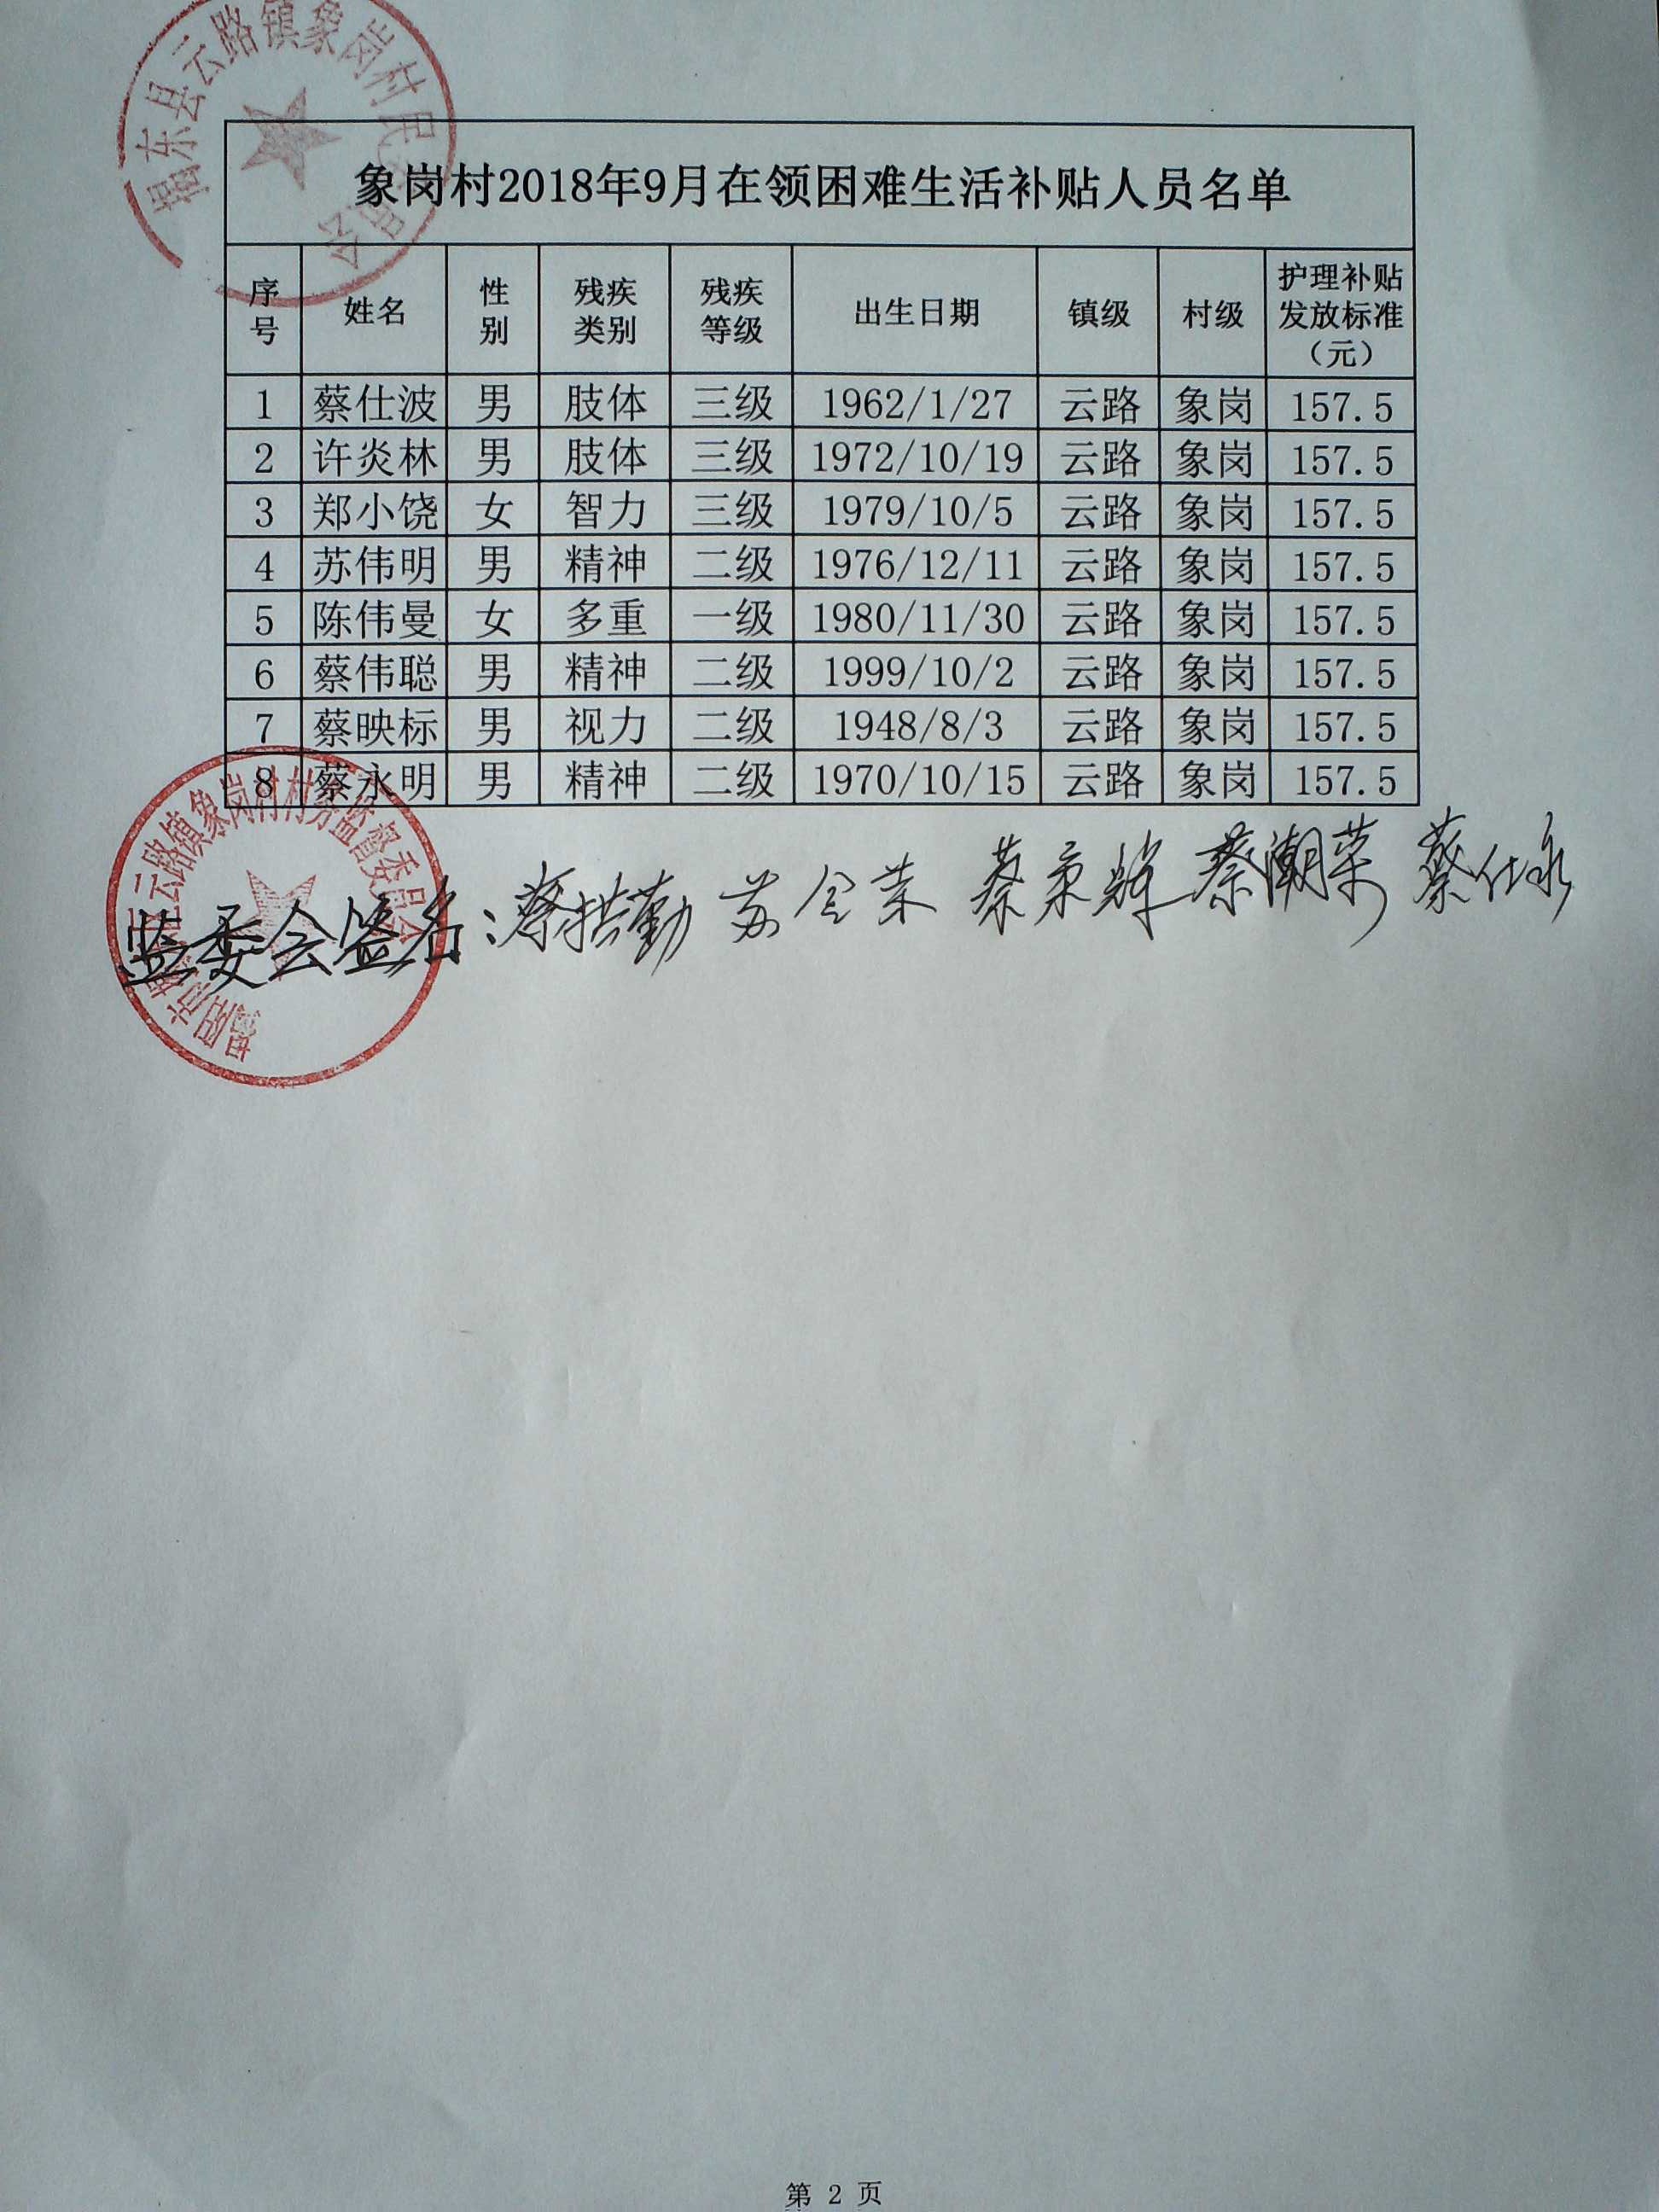 揭东县云路镇象岗村民委员会
象岗村2018年9月在领困难生活补贴人员名单
序号 姓名 性别 残疾类别 残疾等级 出生日期 镇级 村级 护理补贴发放标准（元）
1 蔡仕波 男 肢体 三级 1962/1/27 云路 象岗 157.5
2 许炎林 男 肢体 三级 1972/10/19 云路 象岗 157.5
3 郑小饶 女 智力 三级 1979/10/5 云路 象岗 157.5
4 苏伟明 男 精神 二级 1976/12/11 云路 象岗 157.5
5 陈伟曼 女 多重 一级 1980/11/30 云路 象岗 157.5
6 蔡伟聪 男 精神 二级 1999/10/2 云路 象岗 157.5
7 蔡映标 男 视力 二级 1948/8/3 云路 象岗 157.5
8 蔡永明 男 精神 二级 1970/10/15 云路 象岗 157.5
云路镇象岗村村务监督委员会
监委会签名：蔡拱勤 苏全荣 蔡秉辉 蔡潮荣 蔡仕永
第 2 页